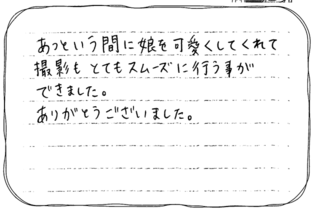 あっという間に娘を可愛くしてくれて
撮影も とてもスムーズに行う事が
できました。
ありがとうございました。